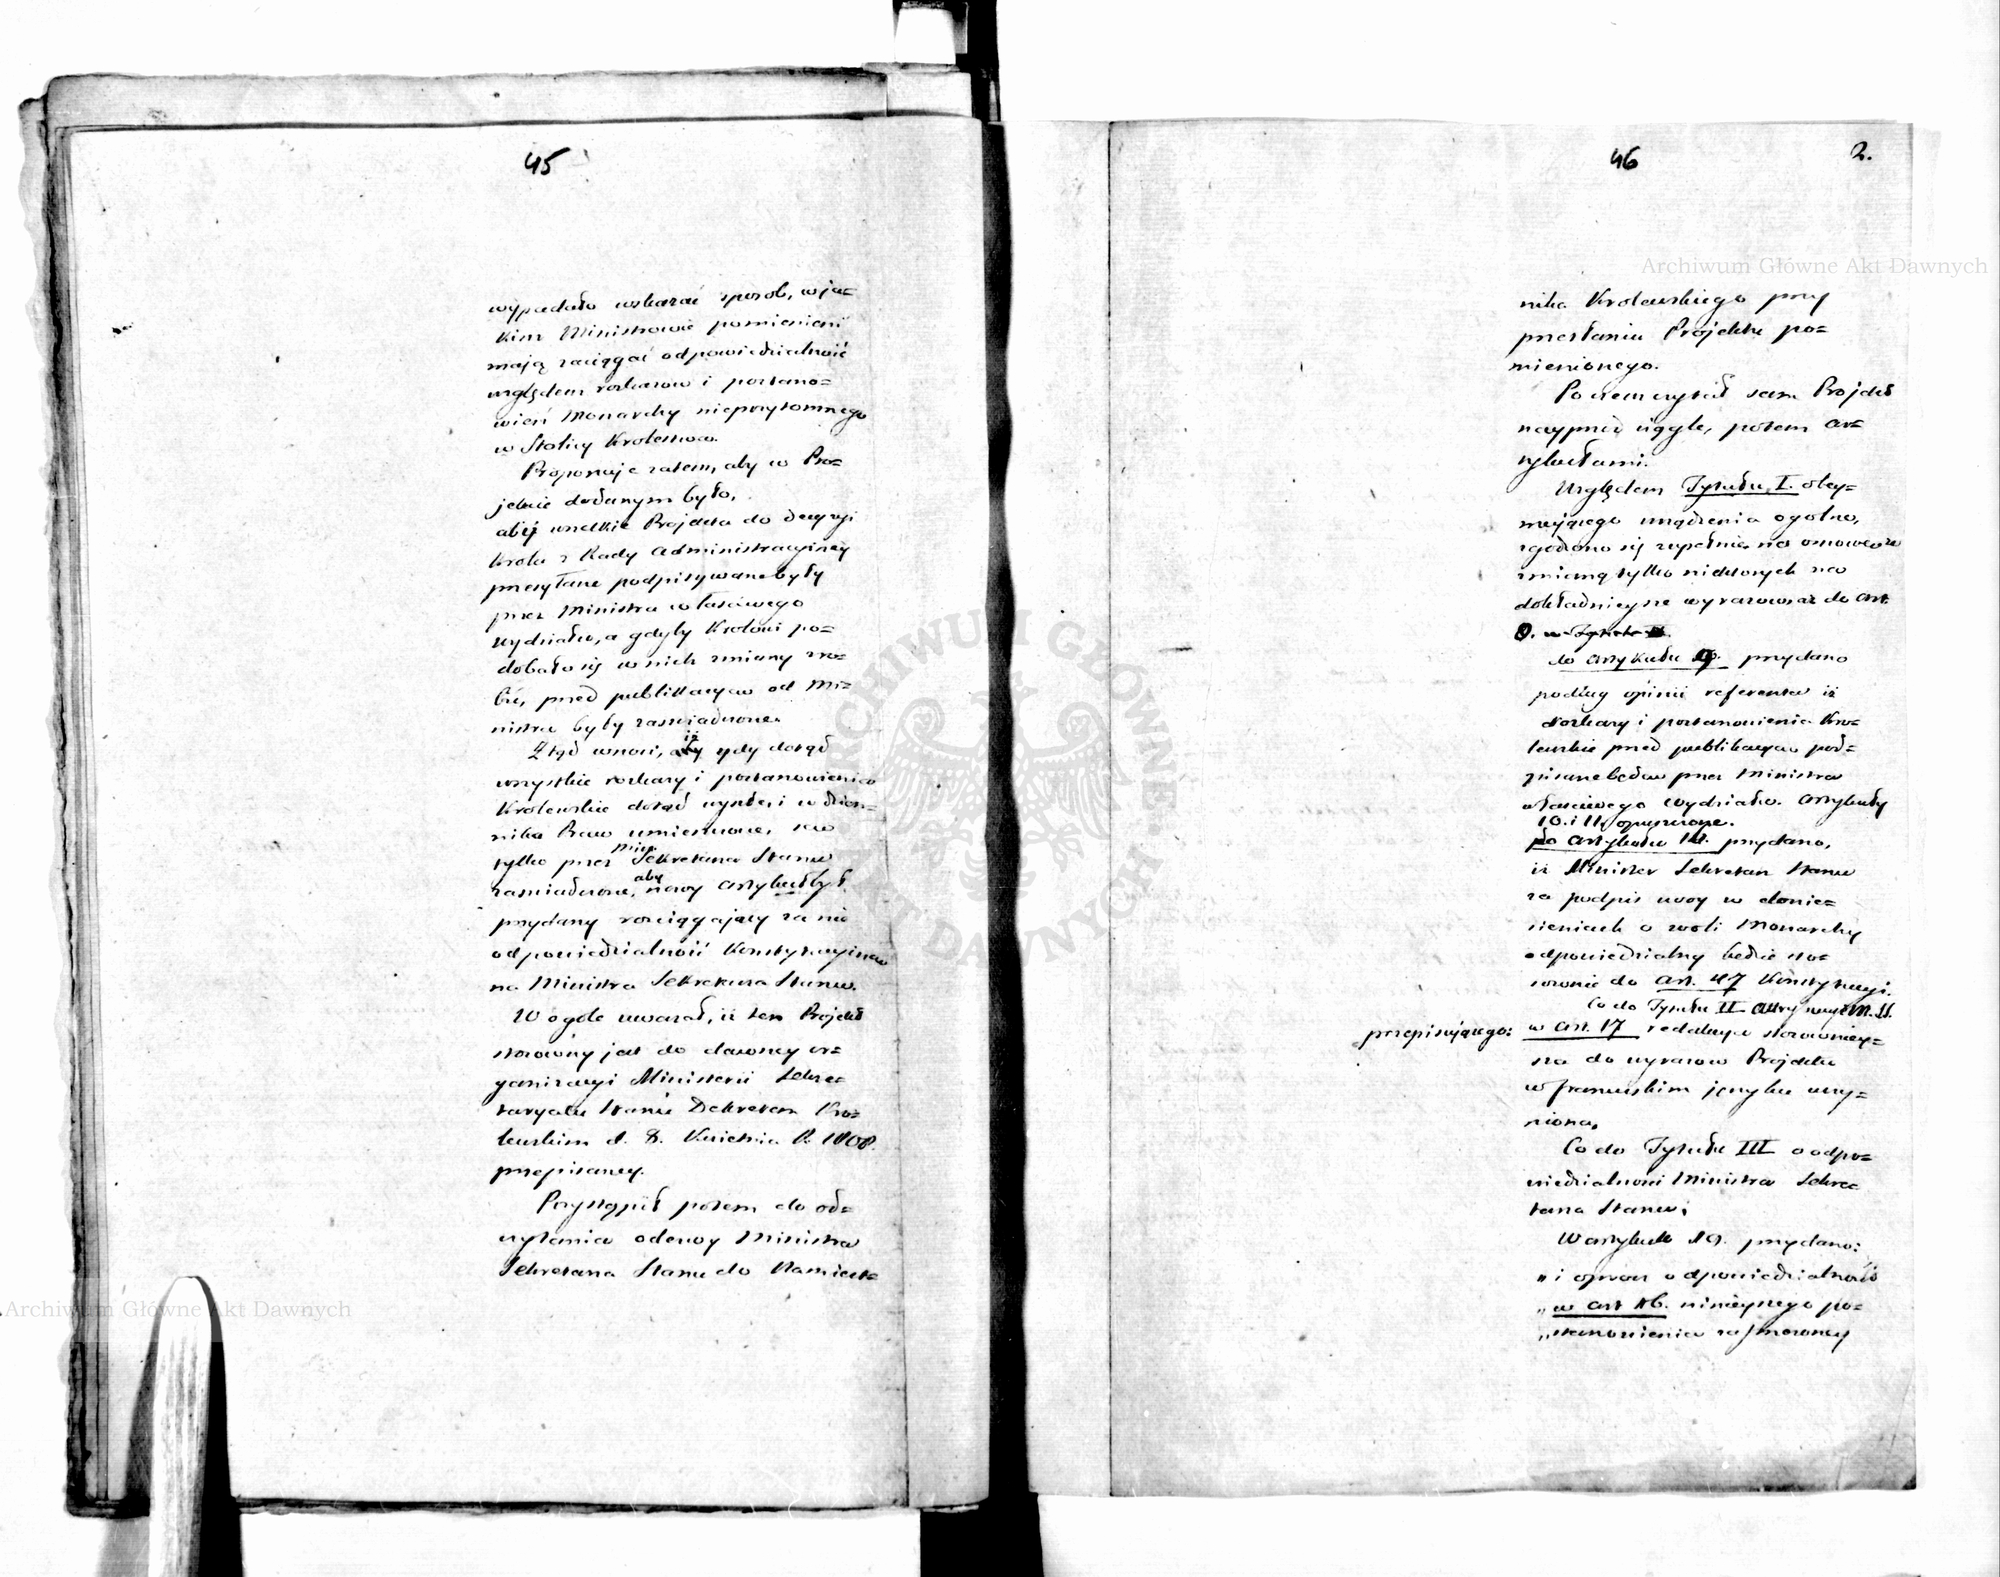 45
wypadało wskazać sposób, w ja=
kim Ministrowie pomienieni
mają zaciągać odpowiedzialność
względem rozkazow i postano=
wień Monarchy nieprzytomnego
w Stolicy Krolestwa.
Proponuje zatem, aby w Pro=
jekcie dodanym było,
aby wszelkie Projekta do decyzyi
Krola z Rady Administracyiney
przesyłane podpisywane były
przez Ministra właściwego
wydziału, a gdyby Krolowi po=
dobało się w nich zmiany zro=
bić, przed publikacyą od Mi=
nistra były zaświadczone.
Ztąd wnosi, iż gdy dotąd
wszystkie rozkazy i postanowienia
Krolewskie dotąd wyszłe, i w dzien=
nika Praw umieszczone, są
tylko przez Min. Sekretarza Stanu
zaświadczone, aby nowy artykuł był
przydany rozciągający za nie
odpowiedzialność Konstytucyiną
na Ministra Sekretarza Stanu.
W ogóle uważał, iż ten Projekt
stosowny jest do dawney or=
ganizacyi Ministerii Sekre=
taryatu Stanu Dekretem Kro=
lewskim d. 8. Kwietnia R. 1808.
przepisaney.
Przystąpił potem do od=
czytania odezwy Ministra
Sekretarza Stanu do Namiest=
46
2.
nika Krolewskiego przy
przesłaniu Projektu po=
mienionego.
Poczem czytał sam Projekt
nayprzod ciągle, potem ar=
tykułami.
Względem Tytułu I. obey=
muiącego urządzenia ogolne,
zgodzono się zupełnie na osnowę ze
zmianą tylko niektorych na
dokładnieysze wyrazow aż do art.
9. w Tytule II.
do artykułu 9. przydano
podług opinii referenta iż
rozkazy i postanowienia Kro=
lewskie przed publikacyą pod=
pisane będą przez Ministra
właściwego wydziału. Artykuły
10. i 11. opuszczone.
Do artykułu 14. przydano,
iż Minister Sekretarz Stanu
za podpis swoy w donie=
sieniach o woli Monarchy
odpowiedzialny będzie sto=
sownie do art. 47 Konstytucyi.
Co do Tytułu II
przepisującego:
w art. 17 redakcya stosowniey=
sza do wyrazow Projektu
w francuskim języku uczy=
niona.
Co do Tytułu III o odpo=
wiedzialności Ministra Sekre=
tarza Stanu;
W artykule 19. przydano:
„ i oprocz odpowiedzialności
„ w art 16. ninieyszego po=
„ stanowienia zastrzeżoney
Archiwum Główne Akt Dawnych
Archiwum Główne Akt Dawnych
ARCHIWUM GŁÓWNE
AKT DAWNYCH